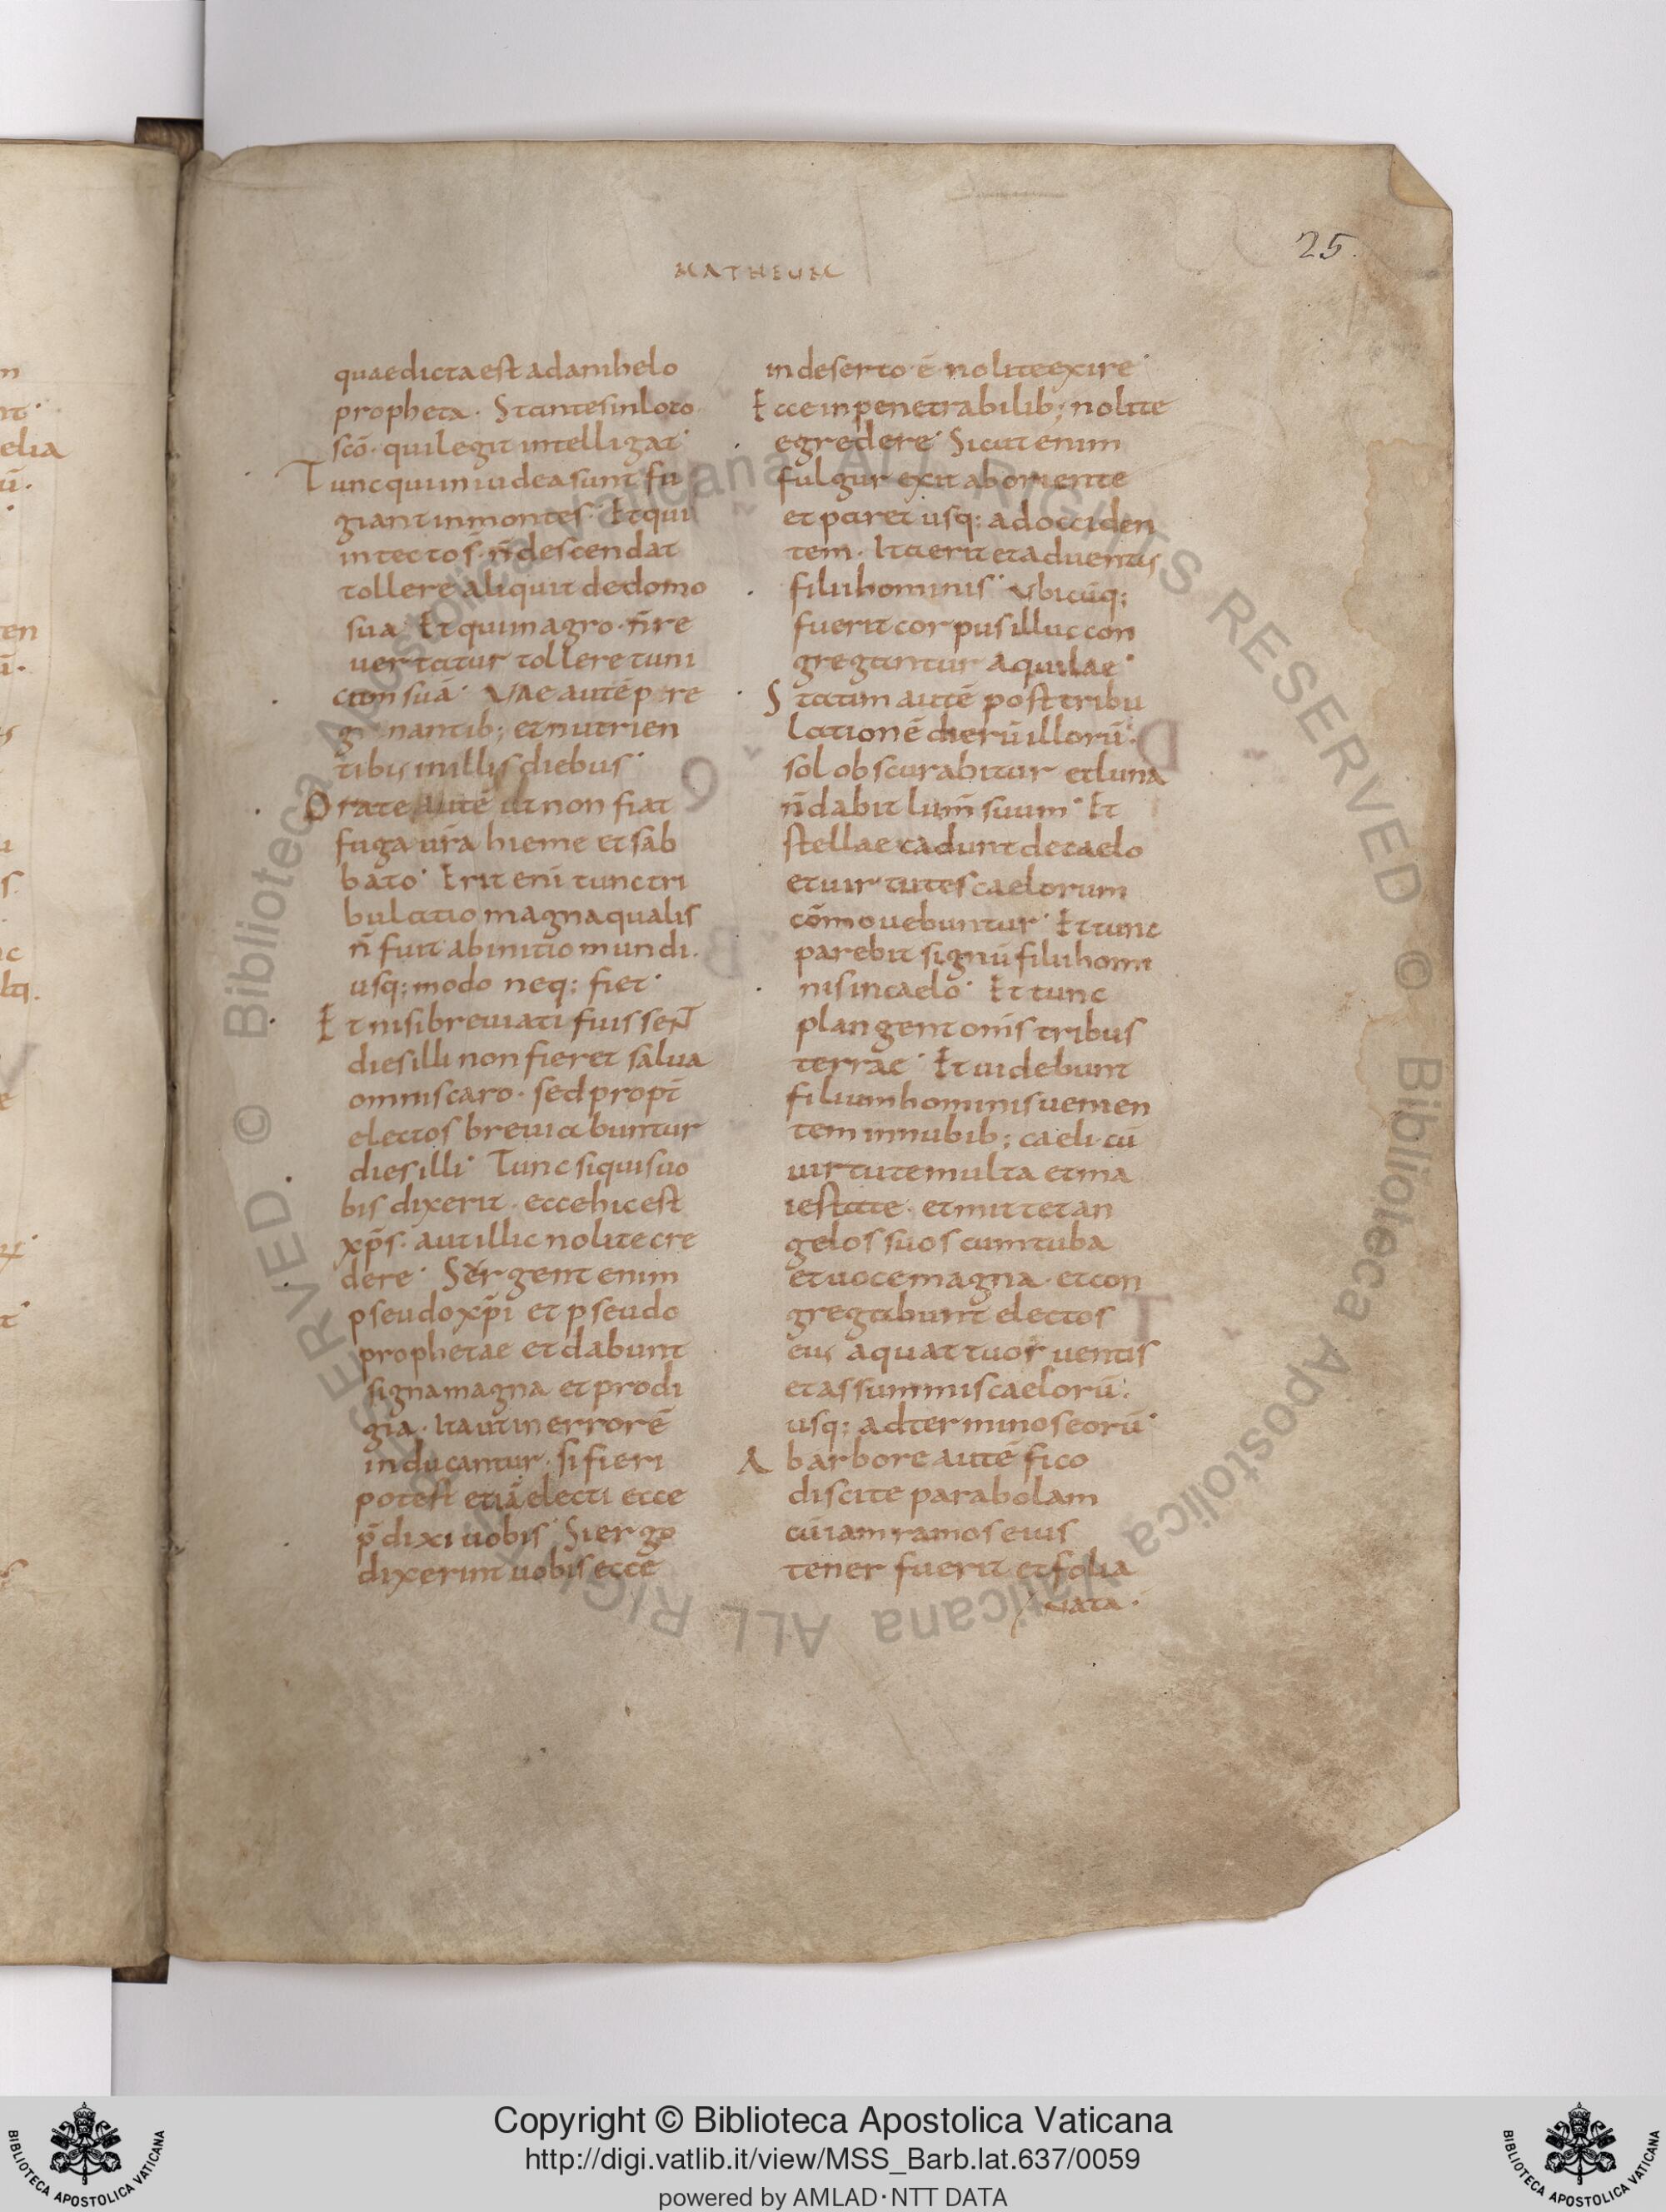 25.
MATHEUM
quaedictaest adanihelo
propheta. Stantesinloco
scō. quilegit intelligat.
Tuncquiiniudeasunt fu
giantinmontes. Etqui
intectos. n̄descendat
tollere aliquit dedomo
sua. Etquiinagro. n̄re
vertatur tollere tuni
camsuā. Vae autē pre
gnantib; etnutrien
tibisinillisdiebus.
Orate autē ut non fiat
fuga ur̄a hieme etsab
bato. Erit enī tunctri
bulatio magnaqualis
n̄ fuit abinitiomundi.
usq; modo neq; fiet.
Et nisibreviati fuissent
diesilli nonfieret salva
omniscaro. sed propt̄
electos breviabuntur
diesilli. Tunc siquisvo
bis dixerit. eccehicest
xp̄s. autillic nolitecre
dere. Surgent enim
pseudoxp̄i et pseudo
prophetae et dabunt
signamagna et prodi
gia. itautinerrorē
inducantur. si fieri
potest etiā electi ecce
p̄dixi uobis. Siergo
dixerint uobisecce
indeserto ē nolite exire.
Ecce inpenetrabilib; nolite
egredere. Sicut enim
fulgur exit aboriente
et paret usq; adocciden
tem. Itaerit etadventus
filiihominis. Ubicūq;
fuerit corpus illuc con
gregantur aquilae.
Statim autē post tribu
lationē dierū illorū.
sol obscurabitur etluna
n̄dabit lum̄ suum. Et
stellae cadunt decaelo
etvirtutes caelorum
cōmovebuntur. Ettunc
parebit signū filiihomi
nisincaelo. Et tunc
plangent om̄s tribus
terrae. Et videbunt
filiumhominisvenien
tem innubib; caeli cū
virtutemulta etma
iestate. etmittet an
gelos suos cumtuba
etvocemagna. etcon
gregabunt electos
eius aquattuor ventis
etassummiscaelorū.
usq; adterminoseorū.
Abarbore autē fico
discite parabolam
cūiam ramoseius
tener fuerit etfolia
nata.
Copyright © Biblioteca Apostolica Vaticana
http://digi.vatlib.it/view/MSS_Barb.lat.637/0059
powered by AMLAD·NTT DATA
BIBLIOTECA APOSTOLICA VATICANA
BIBLIOTECA APOSTOLICA VATICANA